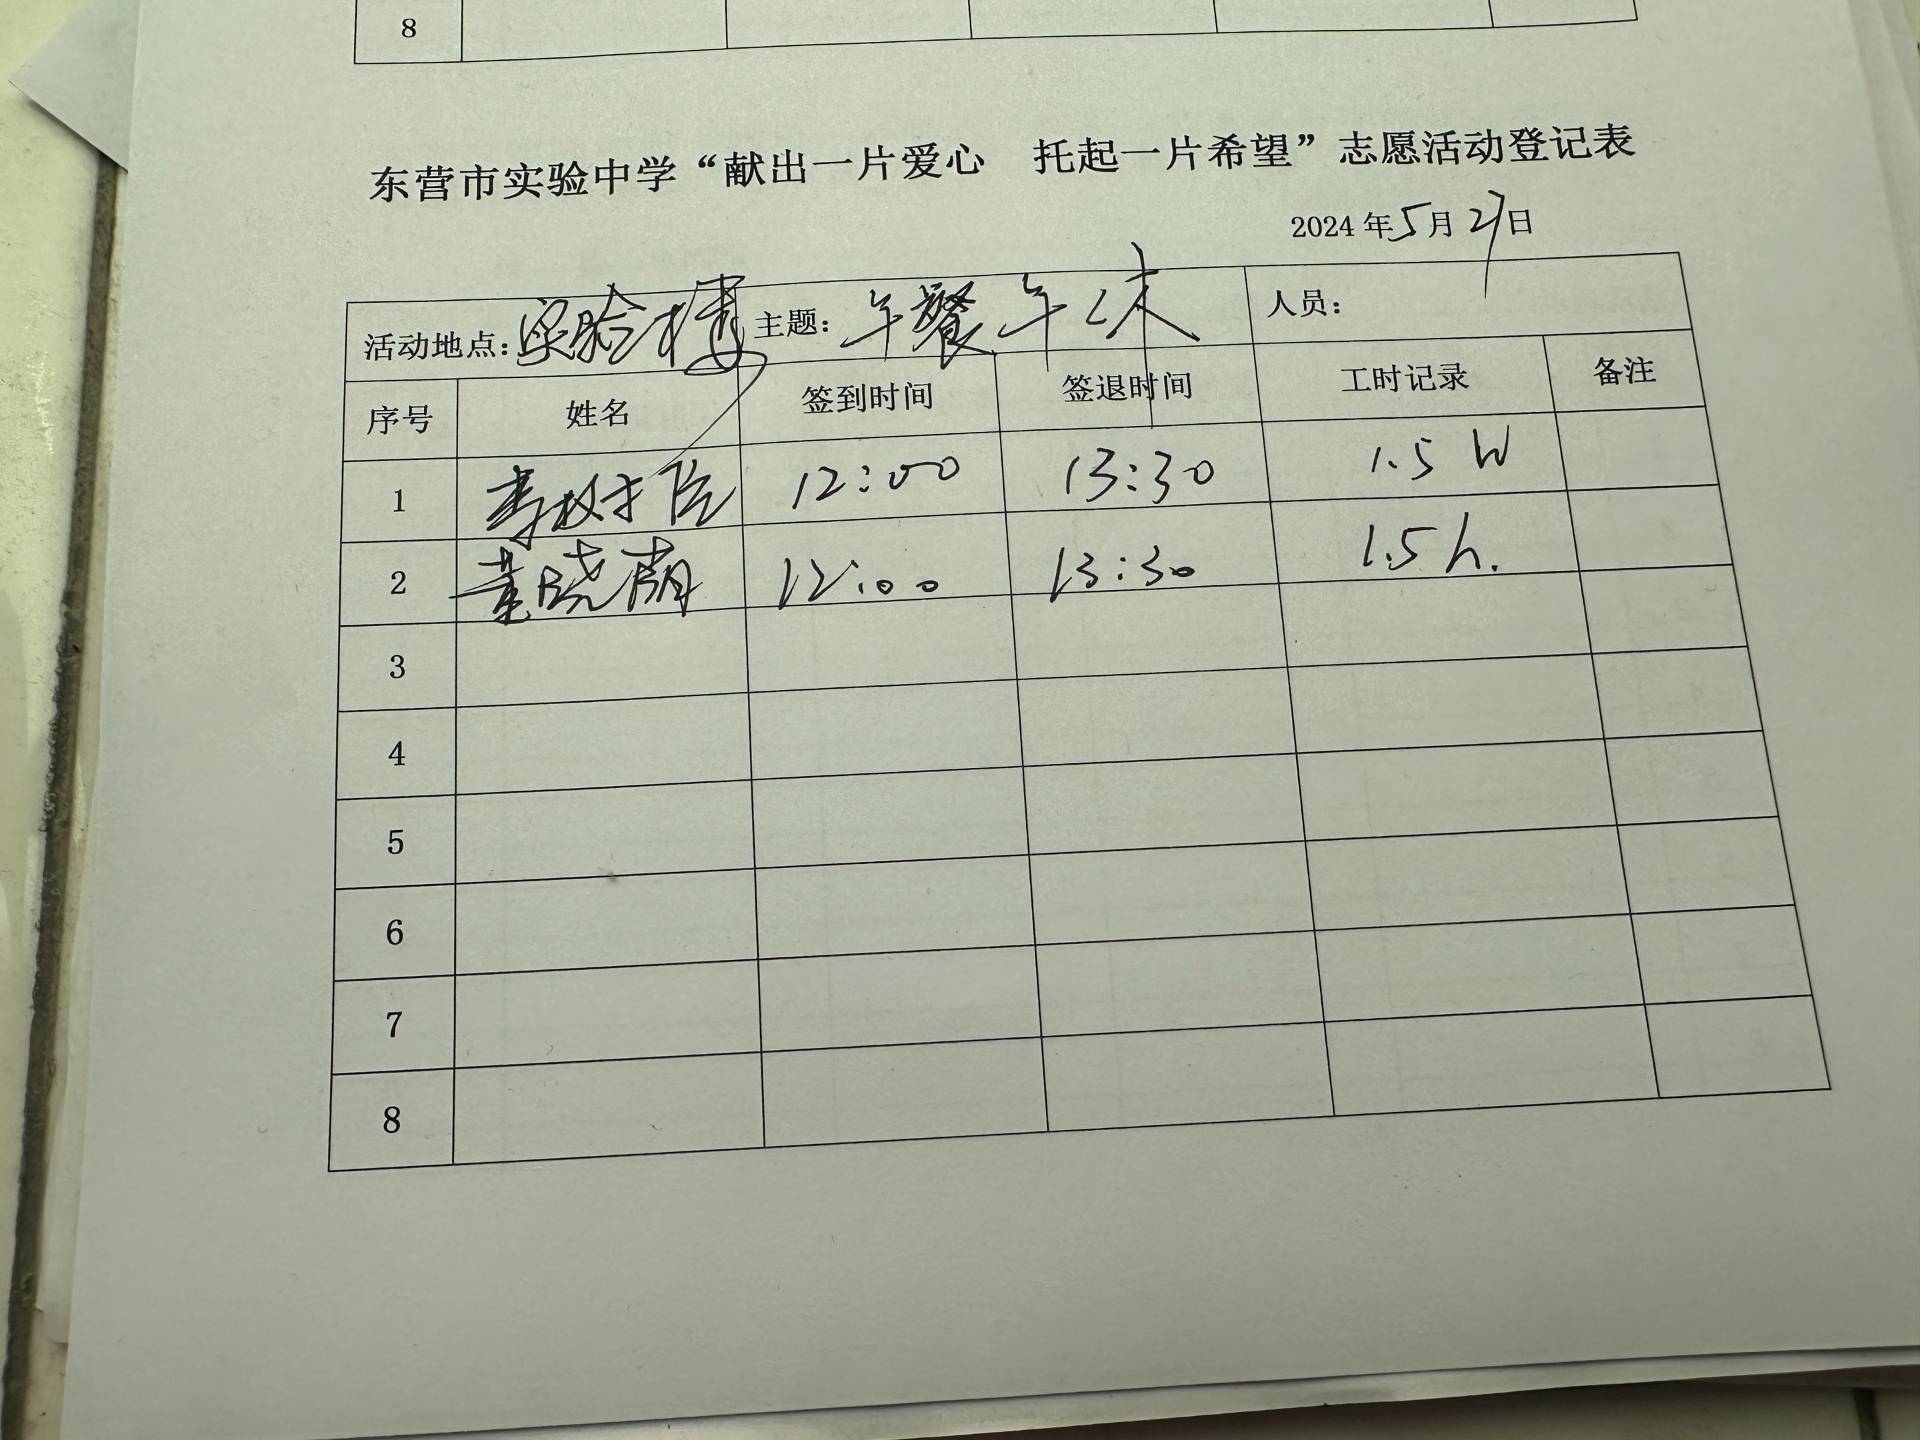 8
东营市实验中学“献出一片爱心 托起一片希望”志愿活动登记表
2024年5月27日
活动地点：实验楼 主题：午餐午休 人员：
序号 姓名 签到时间 签退时间 工时记录 备注
1 12:00 13:30 1.5
2 董晓萌 12:00 13:30 1.5h.
3
4
5
6
7
8